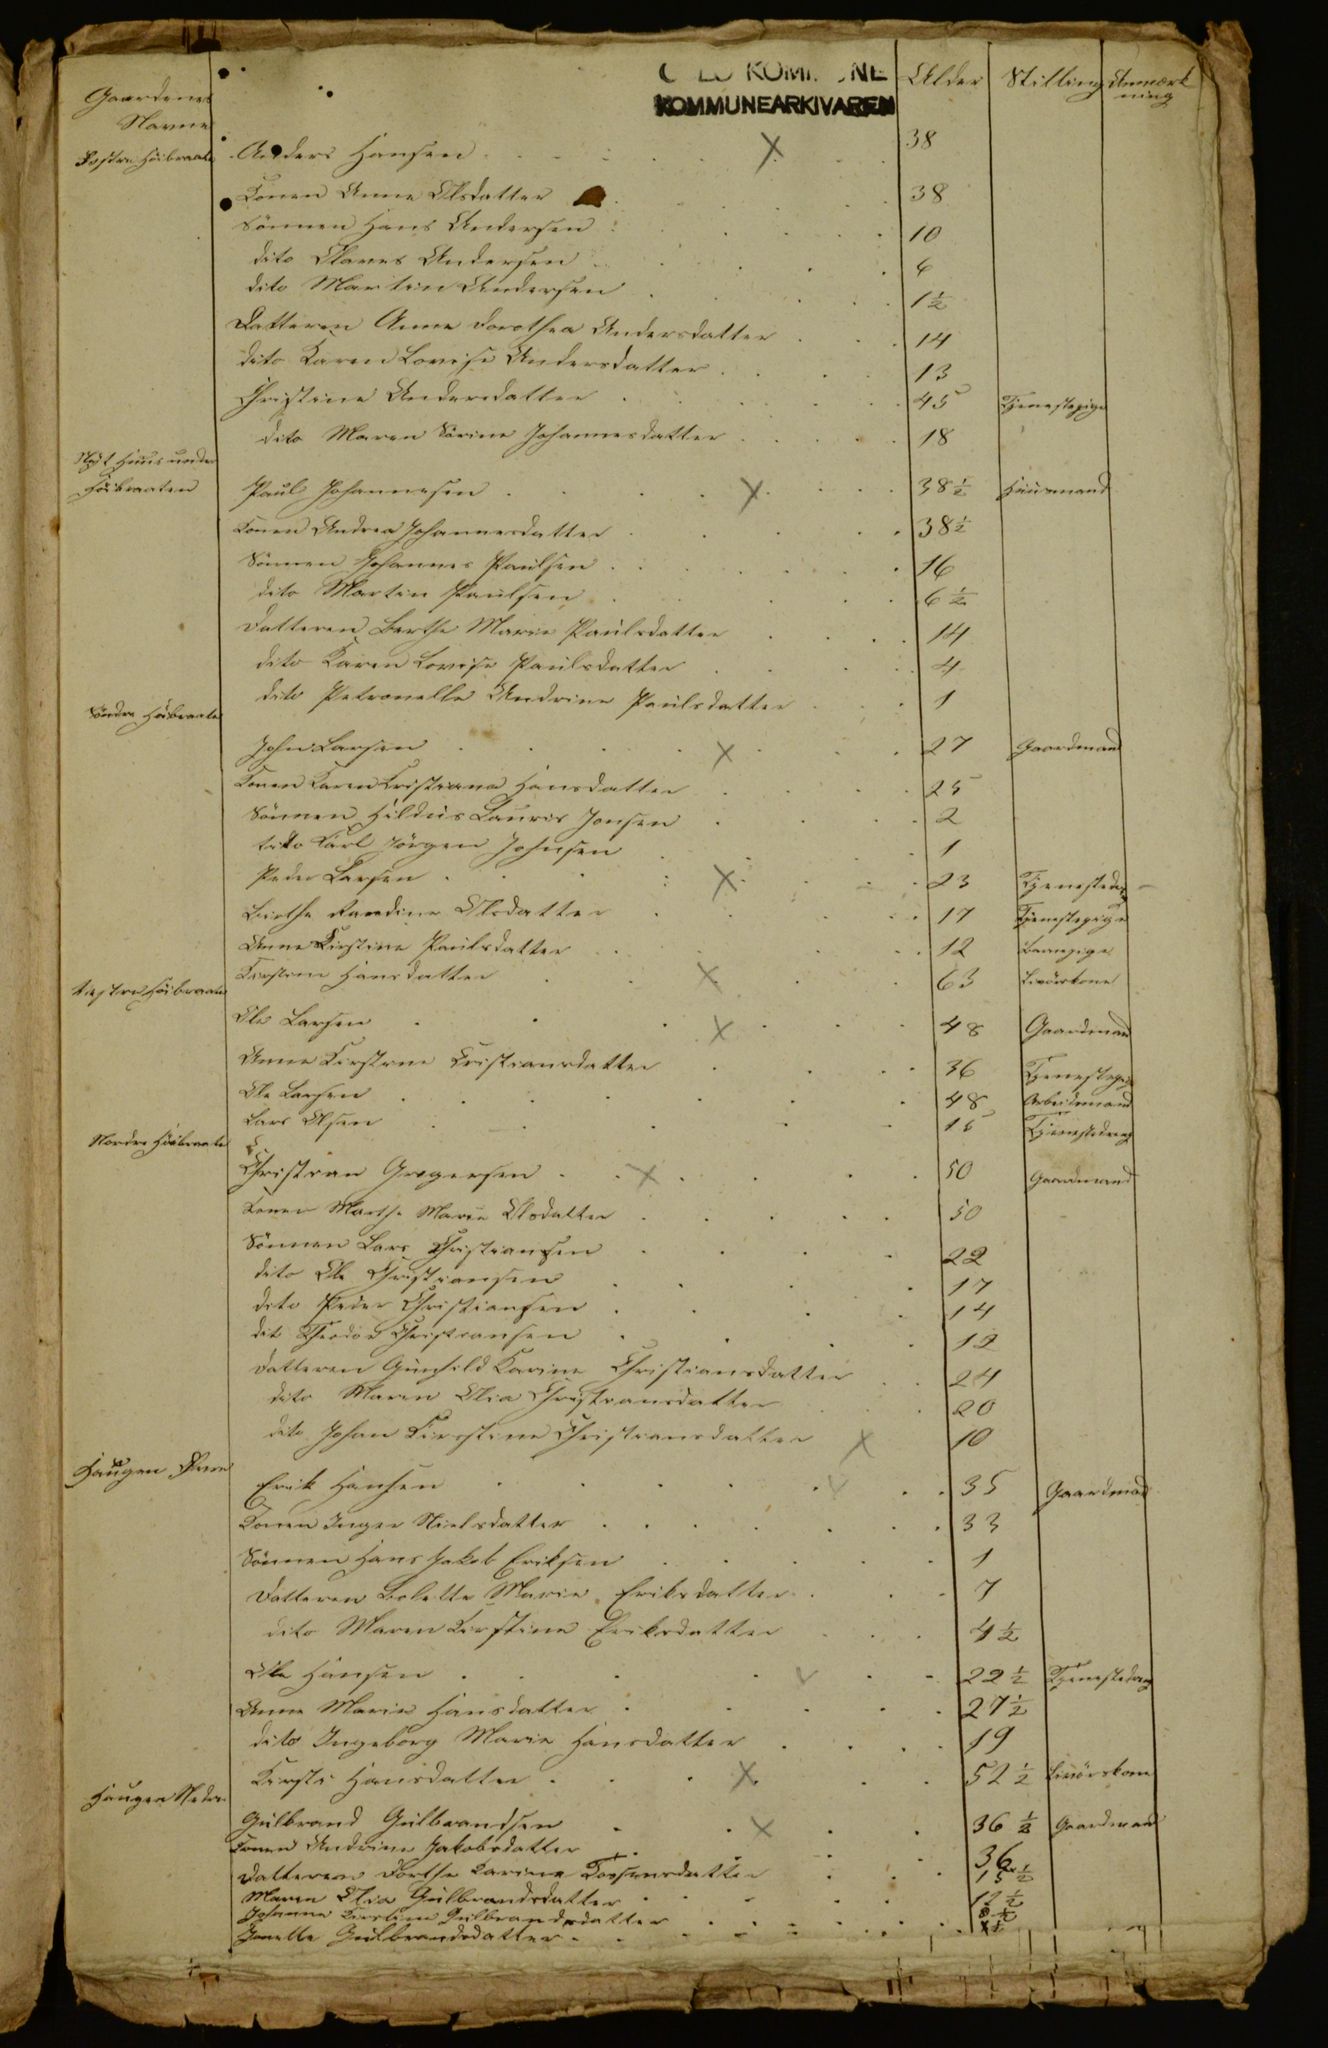 O LO KOMM NE
KOMMUNEARKIVAREN
Gaardenes Navne Alder Stilling Anmærkning
Østre Höibraaten Anders Hansen 38
Konen Anne Olsdatter 38
Sönnen Hans Andersen 10
dito Olaves Andersen 6
dito Martin Andersen 1½
Datteren Anne Dorothea Andersdatter 14
dito Karen Lovise Andersdatter 13
Christine Andersdatter 45 Tjenestepige
dito Maren Sörine Johannesdatter 18
Nyt Huus under
Höibraaten Paul Johannesen 38½ Huusmand
Konen Andrea Johannesdatter 38½
Sönnen Johannes Paulsen 16
dito Martin Paulsen 6½
Datteren Berthe Marie Paulsdatter 14
dito Karen Lovise Paulsdatter 4
dito Petronelle Andrine Paulsdatter 1
Söndre Höibraaten
John Larsen 27 Gaardmand
Konen Karen Kristiane Hansdatter 25
Sönnen Hildus Lauris Jonsen 2
dito Carl Jörgen Johnsen 1
Peder Larsen 23 Tjenestedreng
Berthe Randine Olsdatter 17 Tjenestepige
Anne Kirstine Paulsdatter 12 Barnepige
Kirstine Hansdatter 63 Livörskone
Vestre Höibraaten
Ole Larsen 48 Gaardmand
Anne Kirstine Cristiansdatter 36 Tjenestepige
Ole Larsen 48 Arbeidsmand
Lars Olsen 15 Tjenestedreng
Nordre Höibraaten
Christian Gregersen 50 Gaardmand
Konen Marthe Marie Olsdatter 50
Sönnen Lars Christiansen 22
dito Ole Christiansen 17
dito Peder Christiansen 14
dit Theodor Christiansen 12
Datteren Gunhild Karine Christiansdatter 24
dito Maren Olia Christiansdatter 20
dito Johan Kirstine Christiansdatter 10
Haugen Övre
Erik Hansen 35 Gaardmand
Konen Inger Nielsdatter 33
Sönnen Hans Jakob Eriksen 1
Datteren Bolette Marie Eriksdatter 7
dito Maren Kirstine Eriksdatter 4½
Ole Hansen 22½ Tjenestedreng
Anne Marie Hansdatter 27½
dito Ingeborg Marie Hansdatter 19
Kirsti Hansdatter 52½ Livörskone
Haugen Nedre
Gulbrand Gulbrandsen 36½ Gaardmand
Konen Andrine Jakobsdatter 36
Datteren Dorthe Karine 15½
Maren Olia Gulbrandsdatter 12½
Johanne Kirstine Gulbrandsdatter 8½
Jonette Gulbrandsdatter